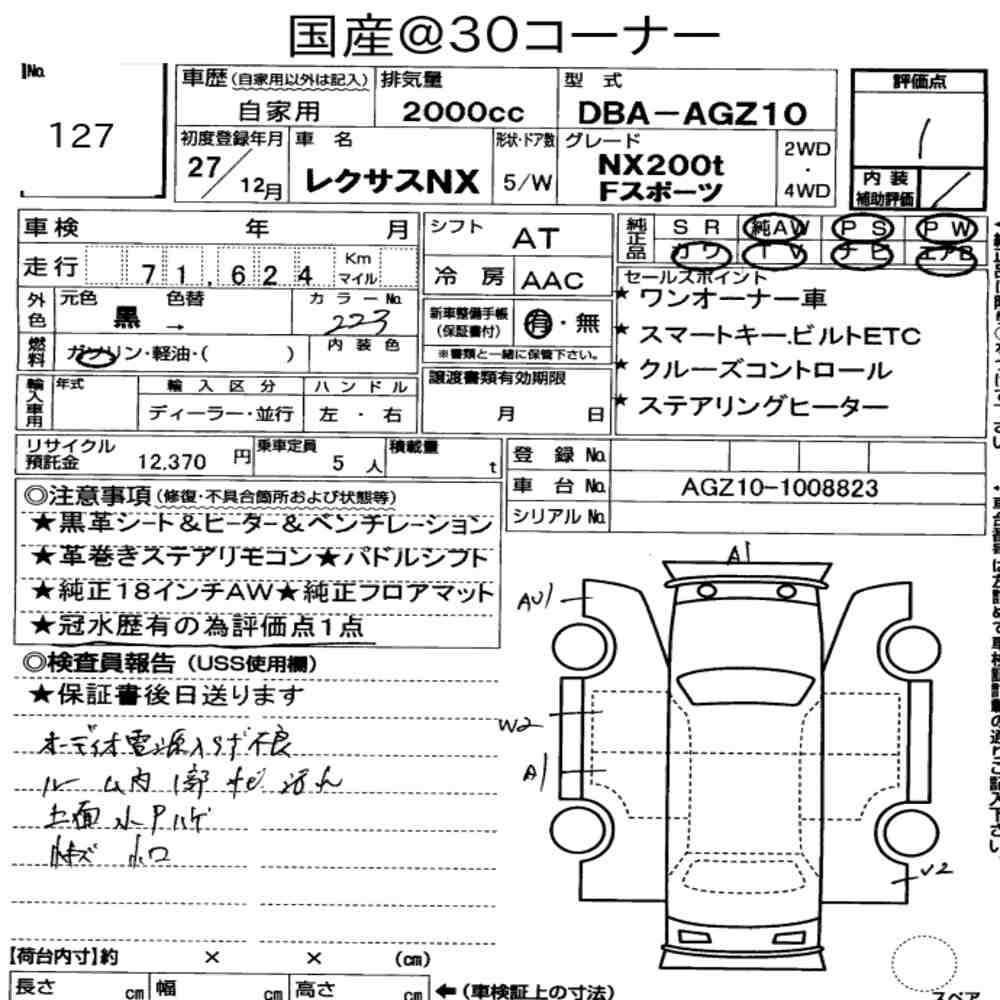 国産@30コーナー
No.
127
車歴(自家用以外は記入)
自家用
排気量
2000cc
型 式
DBA-AGZ10
評価点
1
初度登録年月
27/12月
車 名
レクサスNX
形状・ドア数
5/W
グレード
NX200t
Fスポーツ
2WD
・
4WD
内 装
補助評価
車検 年 月
走行 71,624 Km マイル
外色
元色 黒
色替 →
カラーNo.
223
燃料
ガソリン・軽油・( )
内装色
シフト
AT
冷 房
AAC
新車整備手帳
(保証書付)
有・無
※書類と一緒に保管下さい。
純正品
SR 純AW PS PW
カワ TV ナビ エアB
セールスポイント
★ ワンオーナー車
★ スマートキー.ビルトETC
★ クルーズコントロール
★ ステアリングヒーター
輸入車用
年式
輸 入 区 分
ディーラー・並行
ハ ン ド ル
左 ・ 右
譲渡書類有効期限
月 日
リサイクル
預託金 12,370 円
乗車定員
5 人
積載量
t
登 録 No.
車 台 No.
AGZ10-1008823
シリアル No.
◎注意事項(修復・不具合箇所および状態等)
★黒革シート&ヒーター&ベンチレーション
★革巻きステアリモコン★パドルシフト
★純正18インチAW★純正フロアマット
★冠水歴有の為評価点1点
◎検査員報告(USS使用欄)
★保証書後日送ります
オーディオ電源入らず不良
ルーム内 1部 サビ 汚れ
A1
AU1
W2
A1
U2
【荷台内寸】約 × × (cm)
長さ cm
幅 cm
高さ cm
←(車検証上の寸法)
スペア